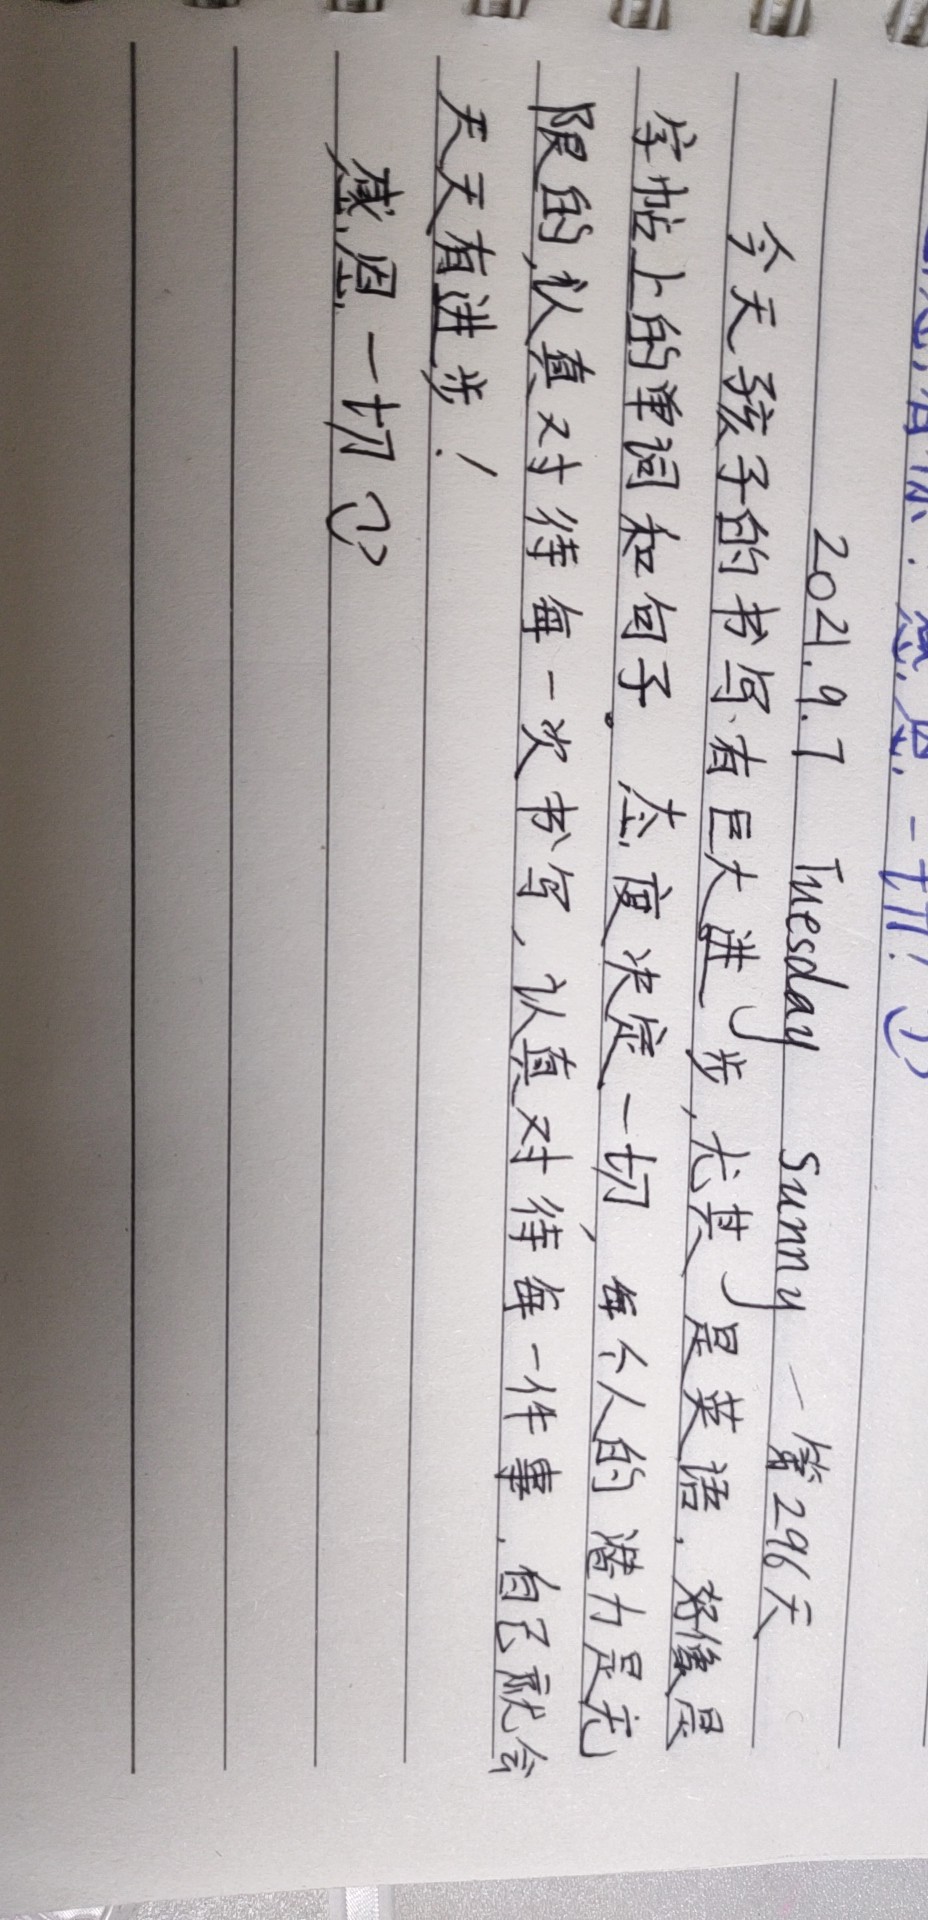 感恩一切!
2021.9.7 Tuesday Sunny 一第296天
今天孩子的书写有巨大进步,尤其是英语,好像是
字帖上的单词和句子。态度决定一切,每个人的潜力是无
限的,认真对待每一次书写,认真对待每一件事,自己就会
天天有进步!
感恩一切